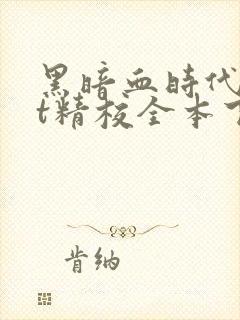 黑暗血時代
t精校全本
肯纳